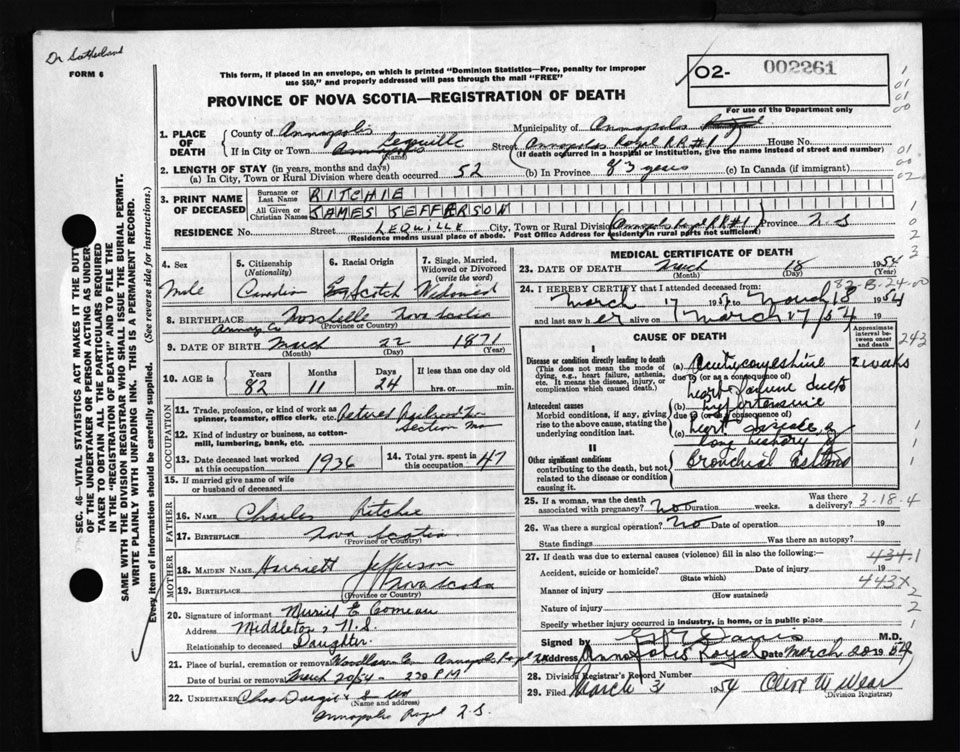 Dr Sutherland
FORM 6
This form, if placed in an envelope, on which is printed "Dominion Statistics—Free, penalty for improper
use $50," and properly addressed will pass through the mail "FREE"
O2- 002261
For use of the Department only
PROVINCE OF NOVA SCOTIA—REGISTRATION OF DEATH
SEC. 46—VITAL STATISTICS ACT MAKES IT THE DUTY
OF THE UNDERTAKER OR PERSON ACTING AS UNDER-
TAKER TO OBTAIN ALL THE PARTICULARS REQUIRED
IN THE "REGISTRATION OF DEATH" AND TO FILE THE
SAME WITH THE DIVISION REGISTRAR WHO SHALL ISSUE THE BURIAL PERMIT.
WRITE PLAINLY WITH UNFADING INK. THIS IS A PERMANENT RECORD.
Every item of information should be carefully supplied. (See reverse side for instructions.)
1. PLACE OF DEATH
County of Annapolis Municipality of Annapolis Royal
If in City or Town Annapolis Lequille (Name) Street (Annapolis Royal RR#1) House No.
(If death occurred in a hospital or institution, give the name instead of street and number)
2. LENGTH OF STAY (in years, months and days)
(a) In City, Town or Rural Division where death occurred 52 (b) In Province 83 years (c) In Canada (if immigrant)
3. PRINT NAME OF DECEASED
Surname or Last Name RITCHIE
All Given or Christian Names JAMES JEFFERSON
RESIDENCE No. Street LEQUILLE City, Town or Rural Division (Annapolis Royal RR#1) Province N S
(Residence means usual place of abode. Post Office Address for residency in rural parts not sufficient)
4. Sex Male
5. Citizenship (Nationality) Canadian
6. Racial Origin Scotch
7. Single, Married, Widowed or Divorced (write the word) Widowed
8. BIRTHPLACE Moschelle Nova Scotia
Annap. Co (Province or Country)
9. DATE OF BIRTH March 22 1871
(Month) (Day) (Year)
10. AGE in Years 82 Months 11 Days 24 If less than one day old hrs. or min.
OCCUPATION
11. Trade, profession, or kind of work as spinner, teamster, office clerk, etc. Retired Railroad
Section Man
12. Kind of industry or business, as cotton-mill, lumbering, bank, etc.
13. Date deceased last worked at this occupation 1936
14. Total yrs. spent in this occupation 47
15. If married give name of wife or husband of deceased
FATHER
16. NAME Charles Ritchie
17. BIRTHPLACE Nova Scotia
(Province or Country)
MOTHER
18. MAIDEN NAME Harriett Jefferson
19. BIRTHPLACE Nova Scotia
(Province or Country)
20. Signature of informant Muriel E Comeau
Address Middleton, N.S.
Relationship to deceased Daughter.
21. Place of burial, cremation or removal Woodlawn Cem Annapolis Royal
Date of burial or removal March 20/54 - 2 30 P M
22. UNDERTAKER Chas Dargie & Son
(Name and address)
Annapolis Royal N.S.
MEDICAL CERTIFICATE OF DEATH
23. DATE OF DEATH March 18 1954
(Month) (Day) (Year)
24. I HEREBY CERTIFY that I attended deceased from:
March 17 1954 to March 18 1954
and last saw her alive on March 17/54 19
CAUSE OF DEATH
Approximate interval between onset and death
I
Disease or condition directly leading to death (a)
(This does not mean the mode of dying, e.g., heart failure, asthenia, etc. It means the disease, injury, or complication which caused death.)
2 weeks
due to (or as a consequence of)
heart failure due to
Antecedent causes (b) hypertensive
Morbid conditions, if any, giving rise to the above cause, stating the underlying condition last.
due to (or as a consequence of)
heart disease &
(c) long history of
II
Other significant conditions Bronchial Asthma
contributing to the death, but not related to the disease or condition causing it.
25. If a woman, was the death associated with pregnancy? No Duration weeks. Was there a delivery?
3-18-4
26. Was there a surgical operation? No Date of operation 19
State findings Was there an autopsy?
27. If death was due to external causes (violence) fill in also the following:—
Accident, suicide or homicide? Date of injury 19
(State which)
Manner of injury
(How sustained)
Nature of injury
Specify whether injury occurred in industry, in home, or in public place
434.1
443X
Signed by Davis M.D.
Address Annapolis Royal Date March 20 1954
28. Division Registrar's Record Number
29. Filed March 31 1954
(Division Registrar)